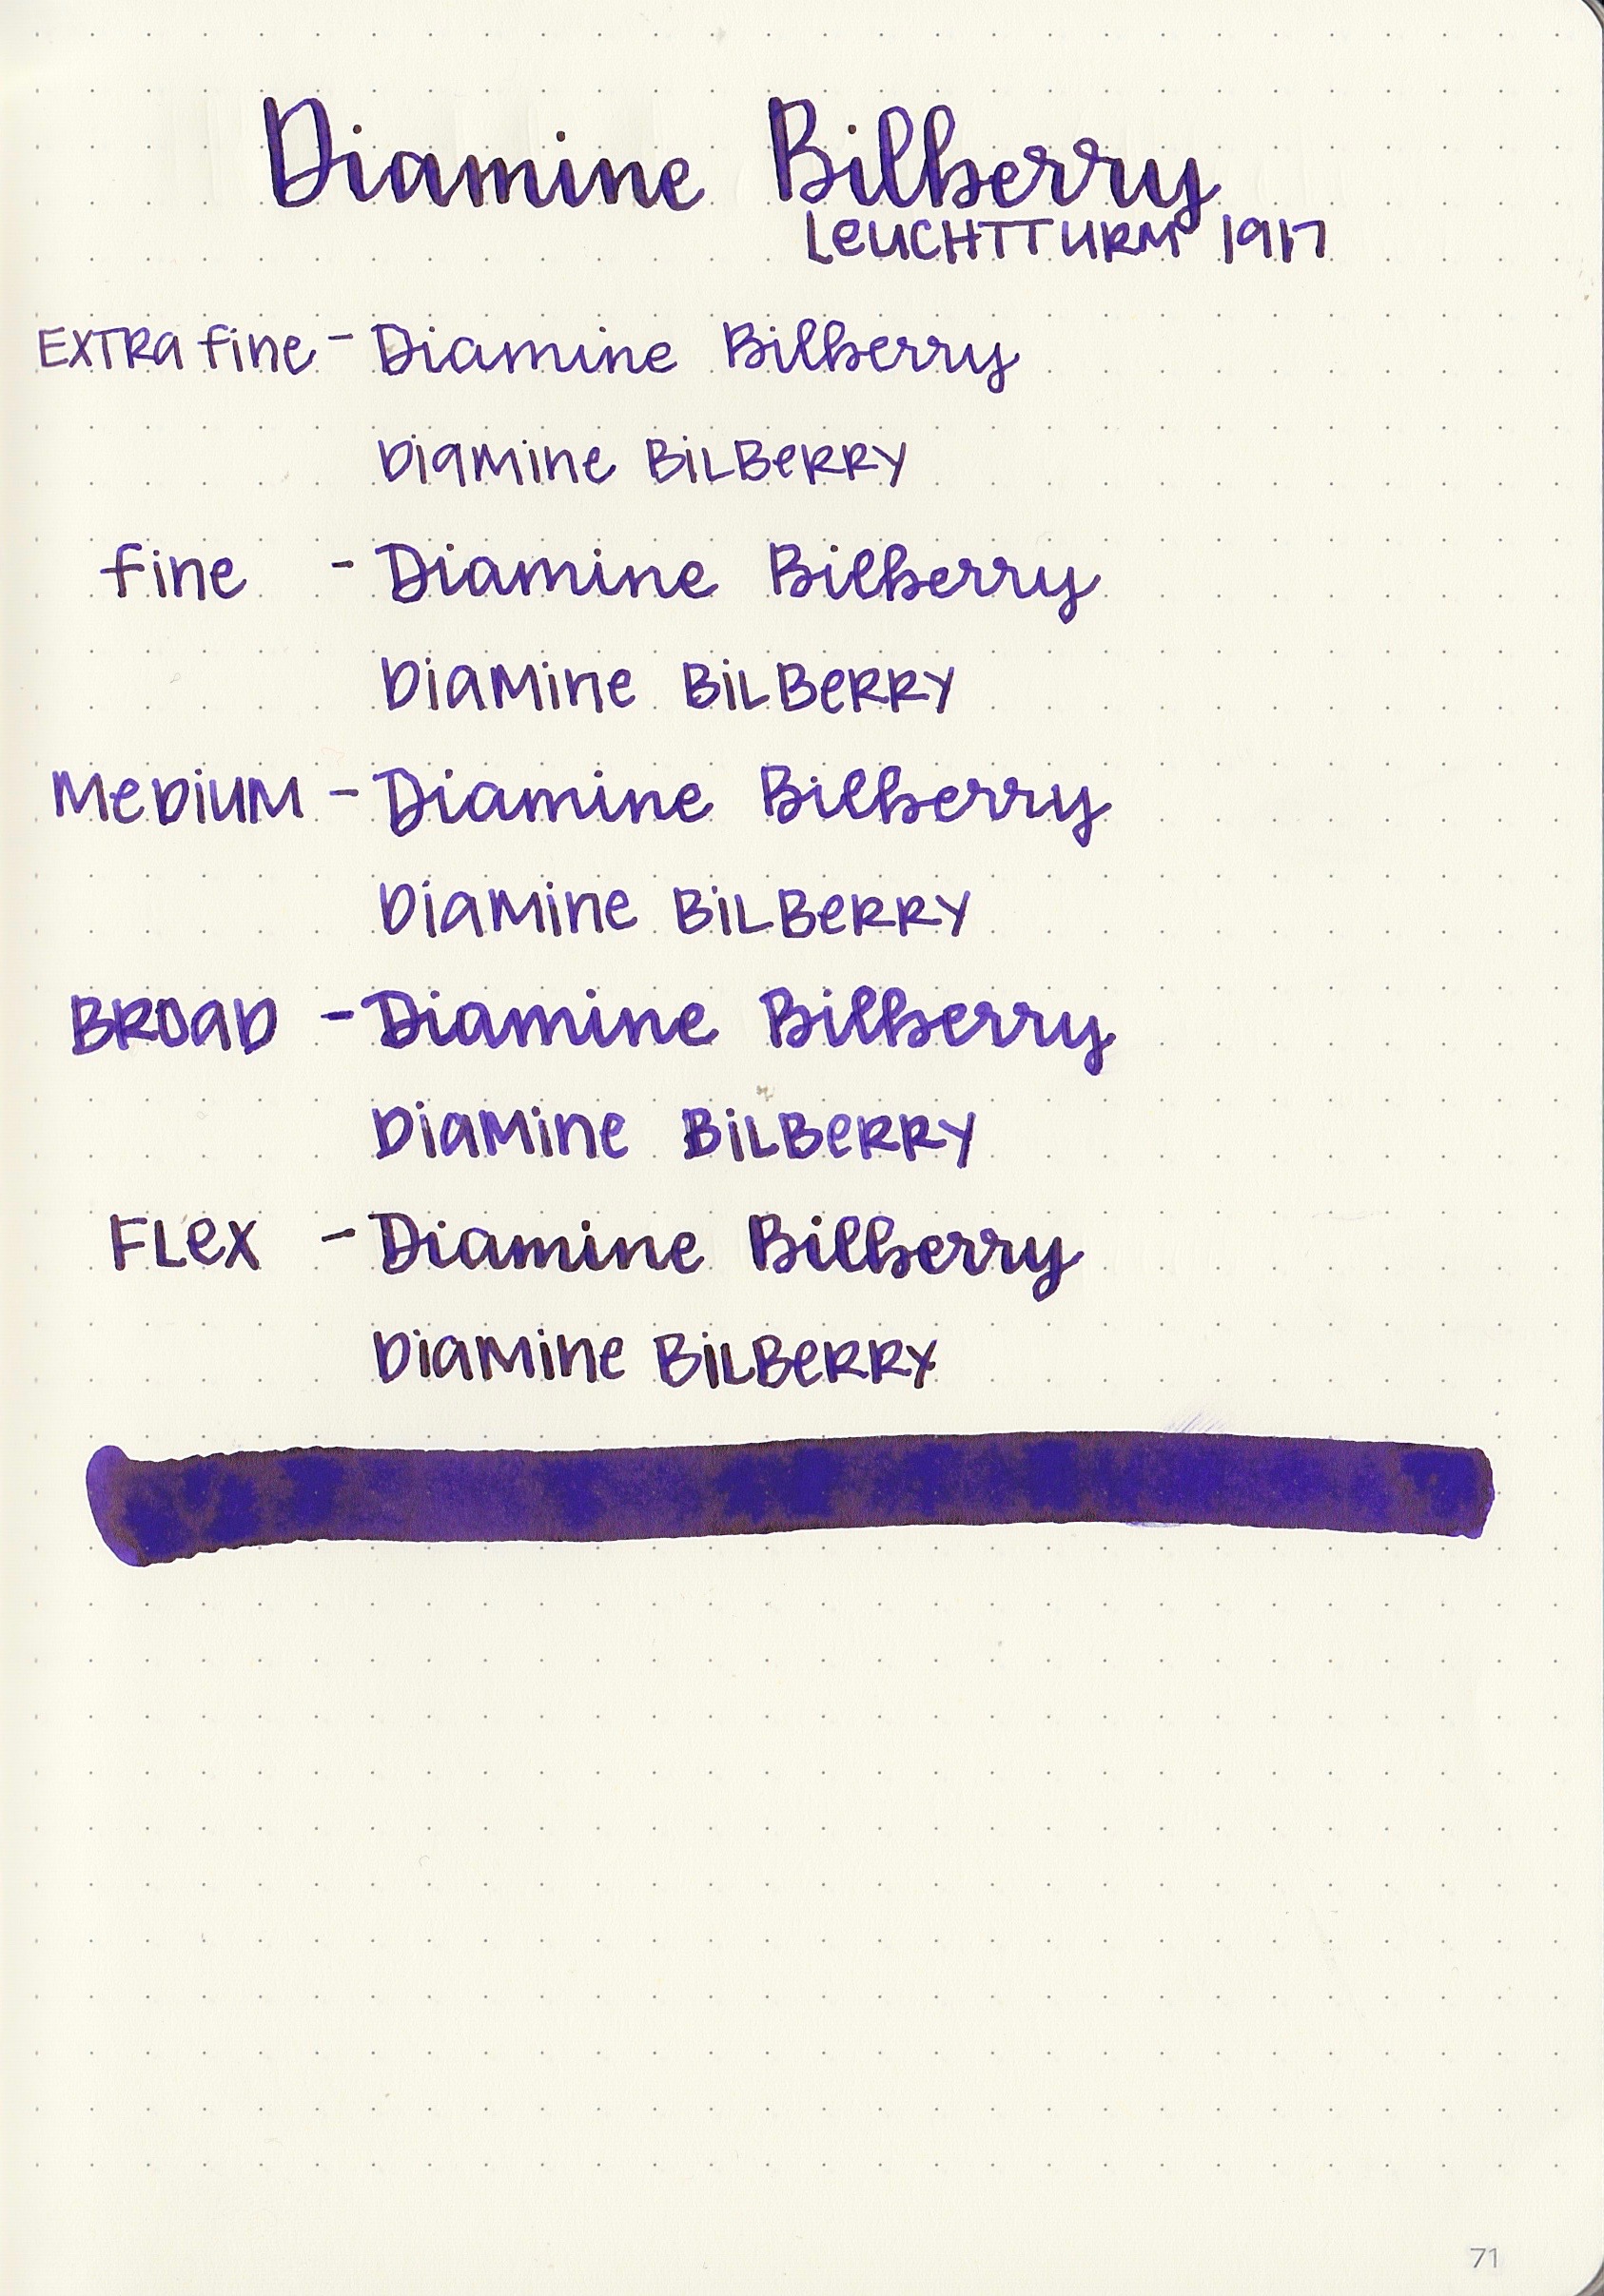 Diamine Bilberry
LEUCHTTURM 1917
EXTRA fine - Diamine Bilberry
DiaMine BiLBeRRY
fine - Diamine Bilberry
DiaMine BiLBeRRY
MeDiUM - Diamine Bilberry
DiaMine BiLBeRRY
BROaD - Diamine Bilberry
DiaMine BiLBeRRY
FLeX - Diamine Bilberry
DiaMine BiLBeRRY
71